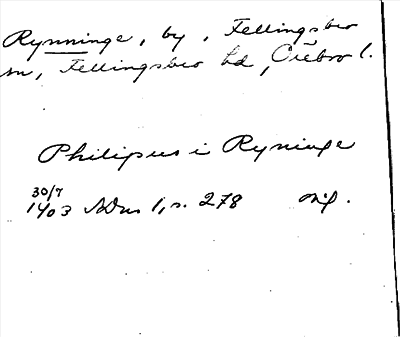 Rynninge, by, Fellingsbro
sn, Fellingsbro hd, Örebro l.
Philipus i Ryninge
30/7
1403 SDns 1, s. 278 orig.